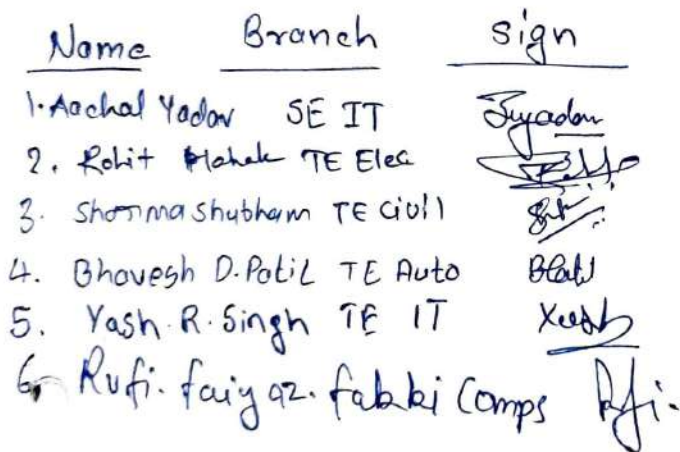 Name Branch Sign
1. Aachal Yadav SE IT
2. Rohit TE Elec
3. Sharma Shubham TE Civil
4. Bhavesh D. Patil TE Auto
5. Yash. R. Singh TE IT Yash
6. Rufi. faiyaz. fakki Comps Rufi.